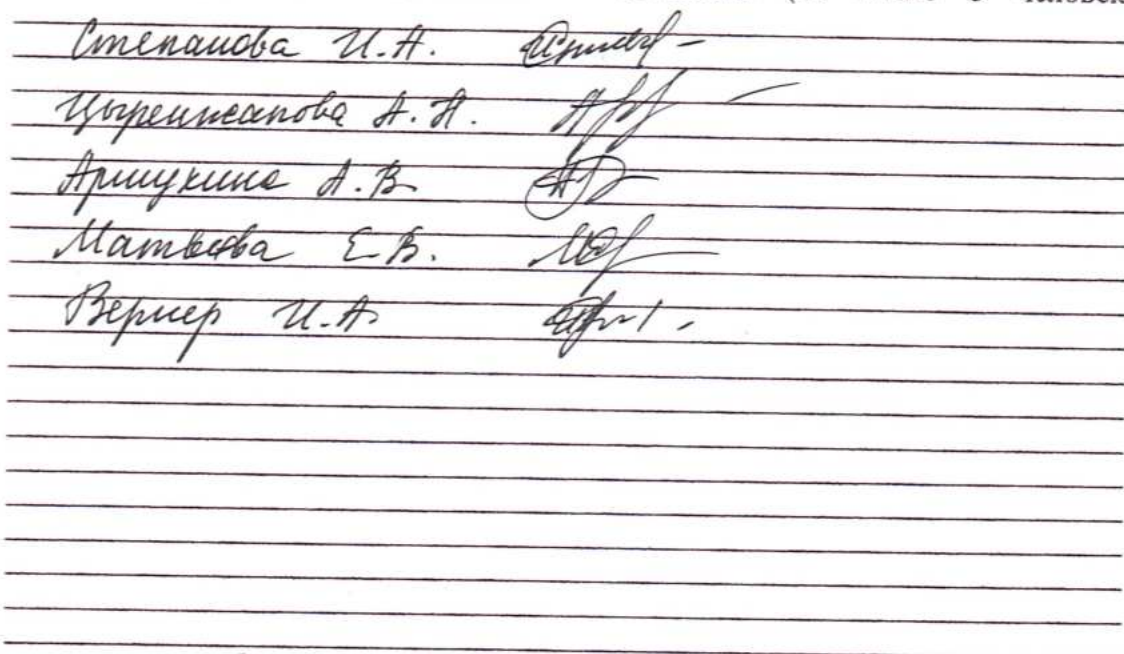 Степанова И.А.
Цыренжапова А.А.
Аршукина А.В.
Матвеева Е.В.
Вернер И.А.